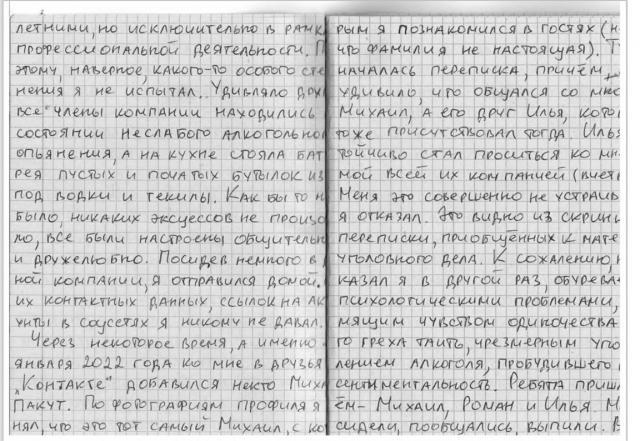 летними, но исключительно в рамк
профессиональной деятельности. П
этому, наверное, какого-то особого сте
нения я не испытал. Удивляло дру
все члены компании находились
состоянии неслабого алкогольно
опьянения, а на кухне стояла бат
рея пустых и початых бутылок из
под водки и текилы. Как бы то н
было, никаких эксцессов не произо
ло, все были настроены общительн
и дружелюбно. Посидев немного в
ной компании, я отправился домой.
их контактных данных, ссылок на ак
унты в соцсетях я никому не давал.
Через некоторое время, а именно
января 2022 года ко мне в друзья
"Контакте" добавился некто Миха
Пакут. По фотографиям профиля я
нял, что это тот самый Михаил, с ко
рым я познакомился в гостях (н
что фамилия не настоящая). Т
началась переписка, причём
удивило, что общался со мно
Михаил, а его друг Илья, кото
тоже присутствовал тогда. Илья
тойчиво стал проситься ко мн
мой всей их компанией (вчет
Меня это совершенно не устраив
я отказал. Это видно из скрин
переписки, приобщённых к мате
уголовного дела. К сожалению, н
казал я в другой раз, обурева
психологическими проблемами,
мящим чувством одиночества
го греха таить, чрезмерным упо
лением алкоголя, пробудившего
сентиментальность. Ребята приш
ём - Михаил, Роман и Илья. М
сидели, пообщались, выпили. В